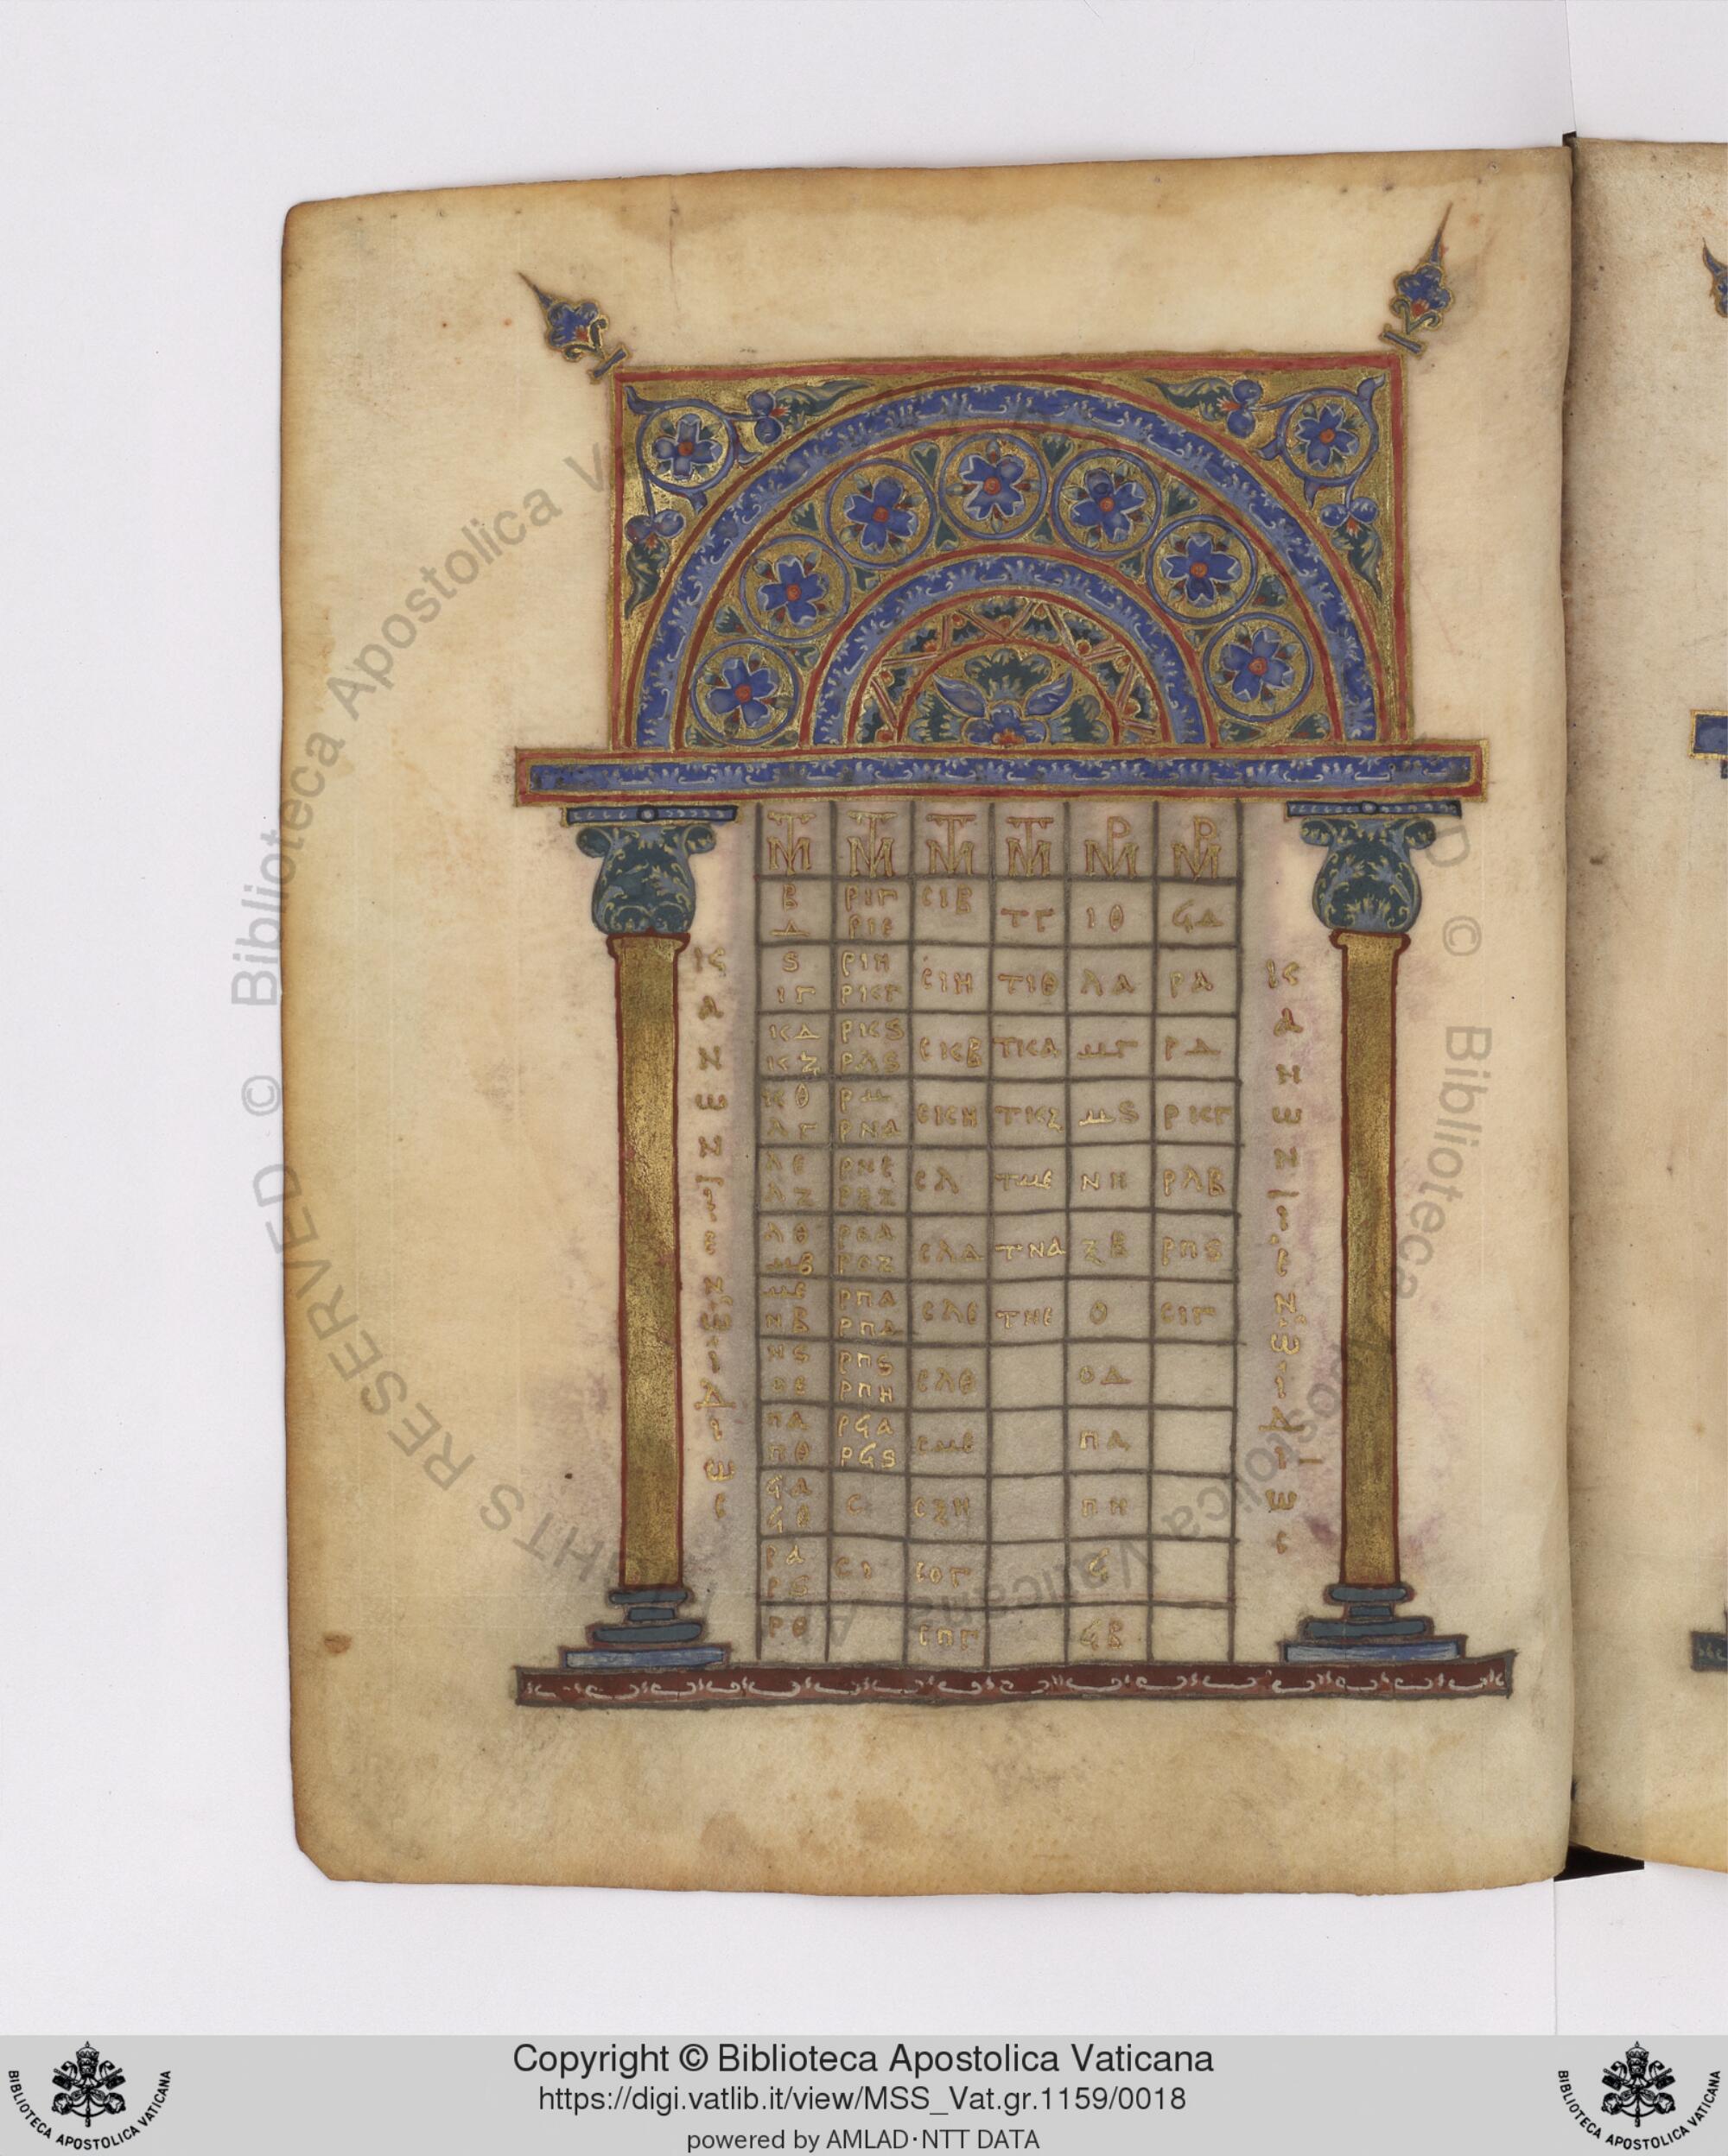 ΜΤ ΜΤ ΜΤ ΜΤ ΜΡ ΜΡ
Β ΡΙΓ ϹΙΒ ΤΓ ΙΘ ϞΔ
Δ ΡΙΕ
Ϛ ΡΙΗ ϹΙΗ ΤΙΘ ΛΑ ΡΑ
ΙΓ ΡΚΓ
ΚΔ ΡΚϚ ϹΚΒ ΤΚΔ ΜΓ ΡΔ
ΚΖ ΡΛϚ
ΚΘ ΡΜ ϹΚΗ ΤΚΖ ΜϚ ΡΚΓ
ΛΓ ΡΝΑ
ΛΕ ΡΝΕ ϹΛ ΤΜΕ ΝΗ ΡΛΒ
ΛΖ ΡΞΖ
ΛΘ ΡΟΑ ϹΛΔ ΤΝΑ ΞΒ ΡΠϚ
ΜΒ ΡΟΖ
ΜΕ ΡΠΑ ϹΛΕ ΤΝΕ Ο ϹΙΓ
ΝΒ ΡΠΔ
ΝϚ ΡΠϚ ϹΛΘ ΟΔ
ΡΠΗ
ΠΑ ΡϞΑ ϹΜΕ ΠΑ
ΠΘ ΡϞϚ
ϞΑ Ϲ ϹΞΗ ΠΗ
ΡΑ ϹΙ ϹΟΓ Ϟ
ΡϚ
ΡΘ ϹΠΓ ϞΒ
ΚΑΝΩΝ Ι ΕΝ Ω ΙΔΙΩϹ
ΚΑΝΩΝ Ι ΕΝ Ω ΙΔΙΩϹ
© Biblioteca Apostolica Vaticana ALL RIGHTS RESERVED
Copyright © Biblioteca Apostolica Vaticana
https://digi.vatlib.it/view/MSS_Vat.gr.1159/0018
powered by AMLAD·NTT DATA
BIBLIOTECA APOSTOLICA VATICANA
BIBLIOTECA APOSTOLICA VATICANA